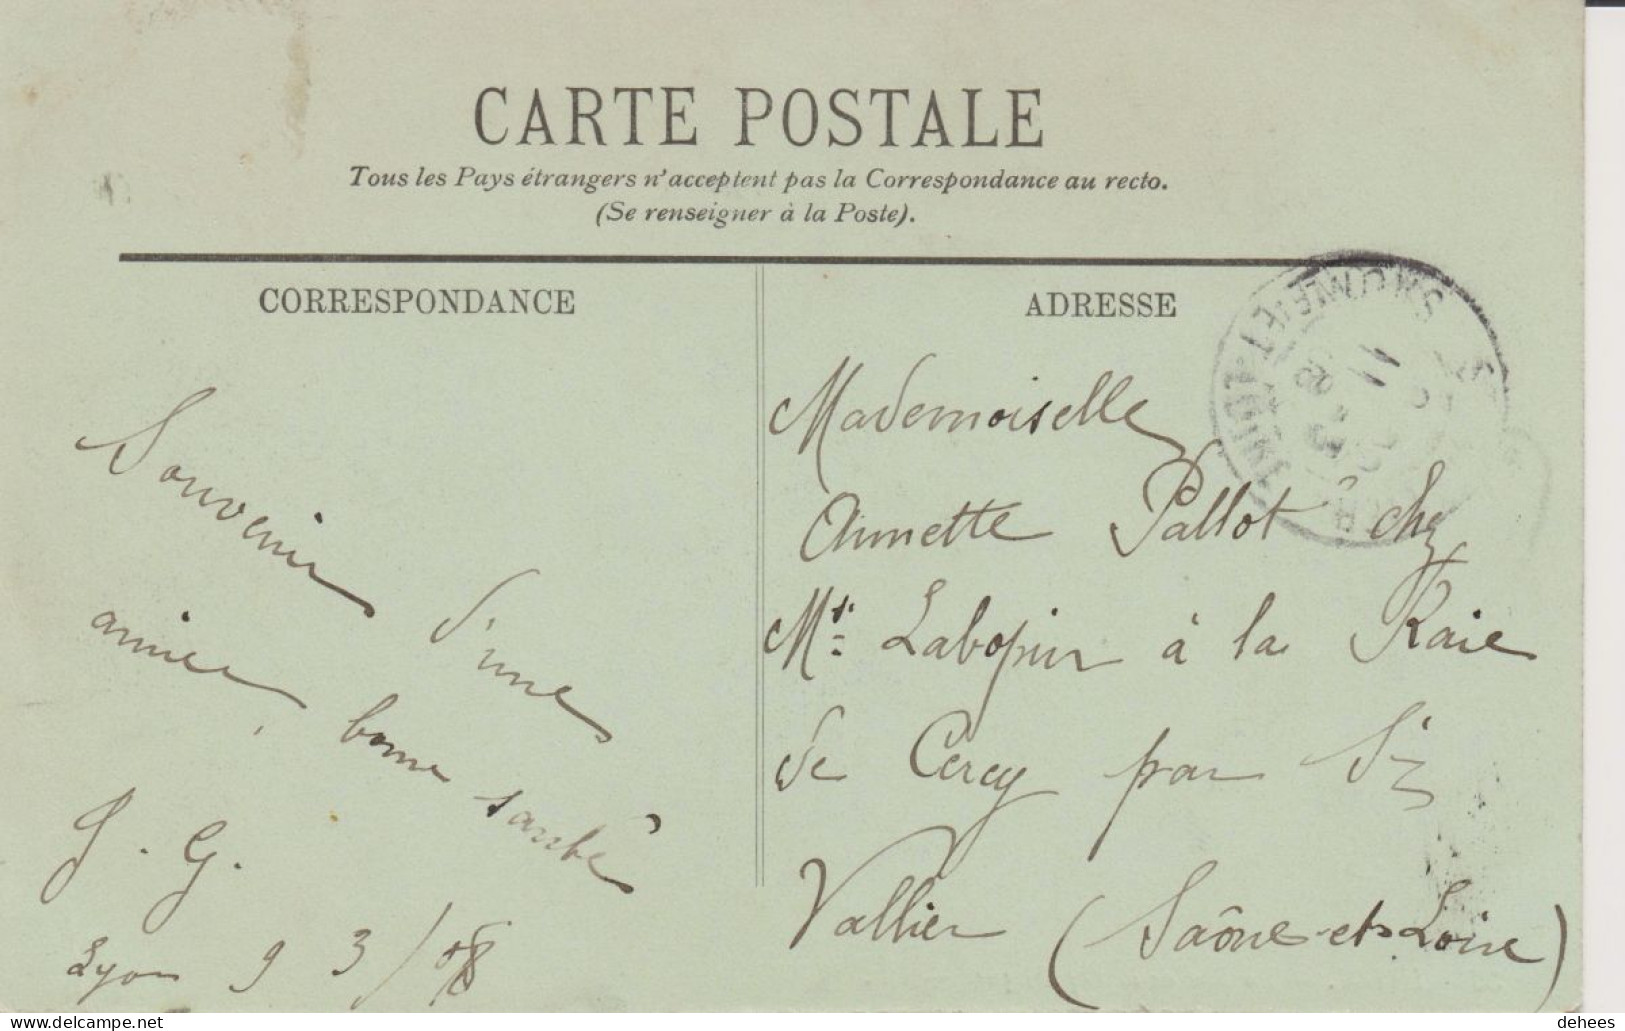 CARTE POSTALE
Tous les Pays étrangers n'acceptent pas la Correspondance au recto.
(Se renseigner à la Poste).
CORRESPONDANCE
Souvenir d'une
amie, bonne santé
J. G.
Lyon 9 3/08
ADRESSE
Mademoiselle
Annette Pallot chez
Mr Labopin à la Raie
de Cercy par St
Vallier (Saône-et-Loire)
SAONE-ET-LOIRE
11
dehees